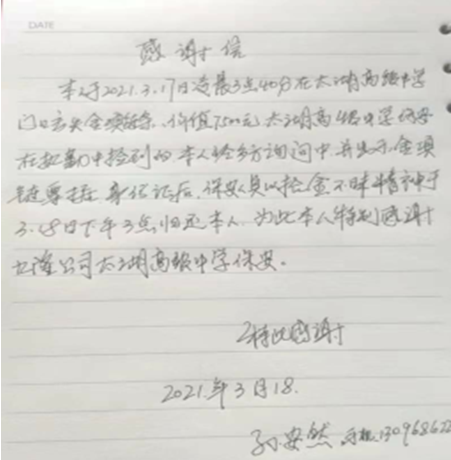 DATE
感谢信
本人于2021.3.17日凌晨3点40分在太湖高级中学
门口丢失金项链一条、价值7500元太湖高级中学保安
在执勤中捡到的本人经多方询问中,并出示金项
链票据、身份证后,保安员以拾金不昧精神于
3.18日下午3点归还本人,为此本人特别感谢
公司太湖高级中学保安。
特此感谢
2021.年3月18.
孙安然 手机:130968622